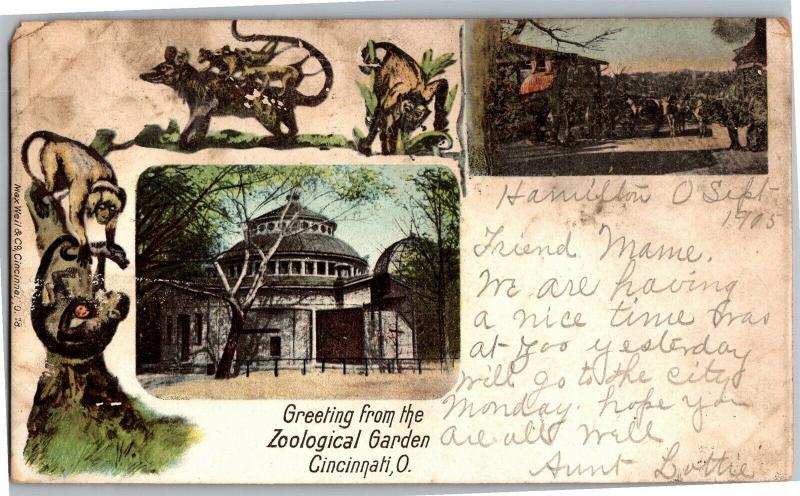 Hamilton O Sept
1905
Friend Mame.
We are having
a nice time Was
at Zoo yesterday
will go to the city
Monday. hope you
are all well
Aunt Lottie
Greeting from the
Zoological Garden
Cincinnati, O.
Max Weil & Co, Cincinnati, O. 78